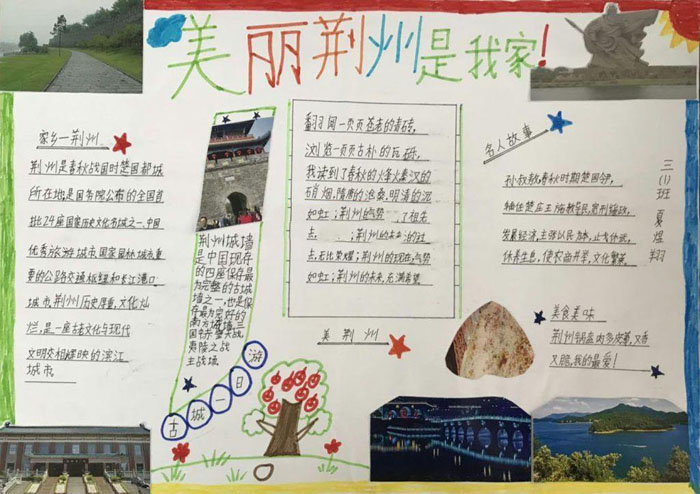 美丽荆州是我家!
家乡—荆州
荆州是春秋战国时楚国都城
所在地是国务院公布的全国首
批24座国家历史文化名城之一、中国
优秀旅游城市、国家园林城市、重
要的公路交通枢纽和长江港口
城市,荆州历史厚重,文化灿
烂,是一座古老文化与现代
文明交相辉映的滨江
城市
荆州城墙
是中国现存
的四座保存最
为完整的古城
墙之一,也是保
存最为完好的
南方城墙,三
国
夷陵之战
主战场
古城一日游
翻阅一页页苍老的青砖,
浏览一页页古朴的瓦砾,
我读到了春秋的烽火秦汉的
硝烟,隋唐的沧桑,明清的泥
如虹;荆州的气势 了祖先
点 ;荆州的未来的过
点,无比荣耀;荆州的现在,气势
如虹;荆州的未来,充满希望
美荆州
名人故事
孙叔敖,春秋时期楚国
辅佐楚庄王施教导民,宽刑缓政,
发展经济,主张以民为本,止戈休武,
休养生息,使农商并举,文化繁荣
三(1)班 夏煜翔
美食美味
荆州锅盔肉多皮薄,又香
又脆,我的最爱!